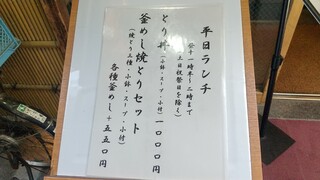 平日ランチ
(十一時半〜二時まで
土日祝祭日を除く)
とり丼(小鉢・スープ・小付)一〇〇〇円
釜めし焼とりセット
(焼とり三種・小鉢・スープ・小付)
各種釜めし+五五〇円